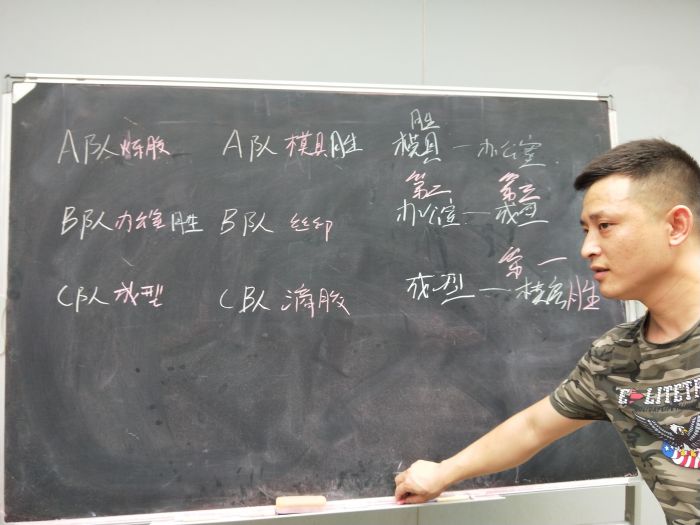 A队炼胶 A队模具胜 胜
模具一办公室
第二 第三
B队办公室胜 B队丝印 办公室一成型
第一
C队成型 C队滴胶 成型一模具胜
E-LITETF